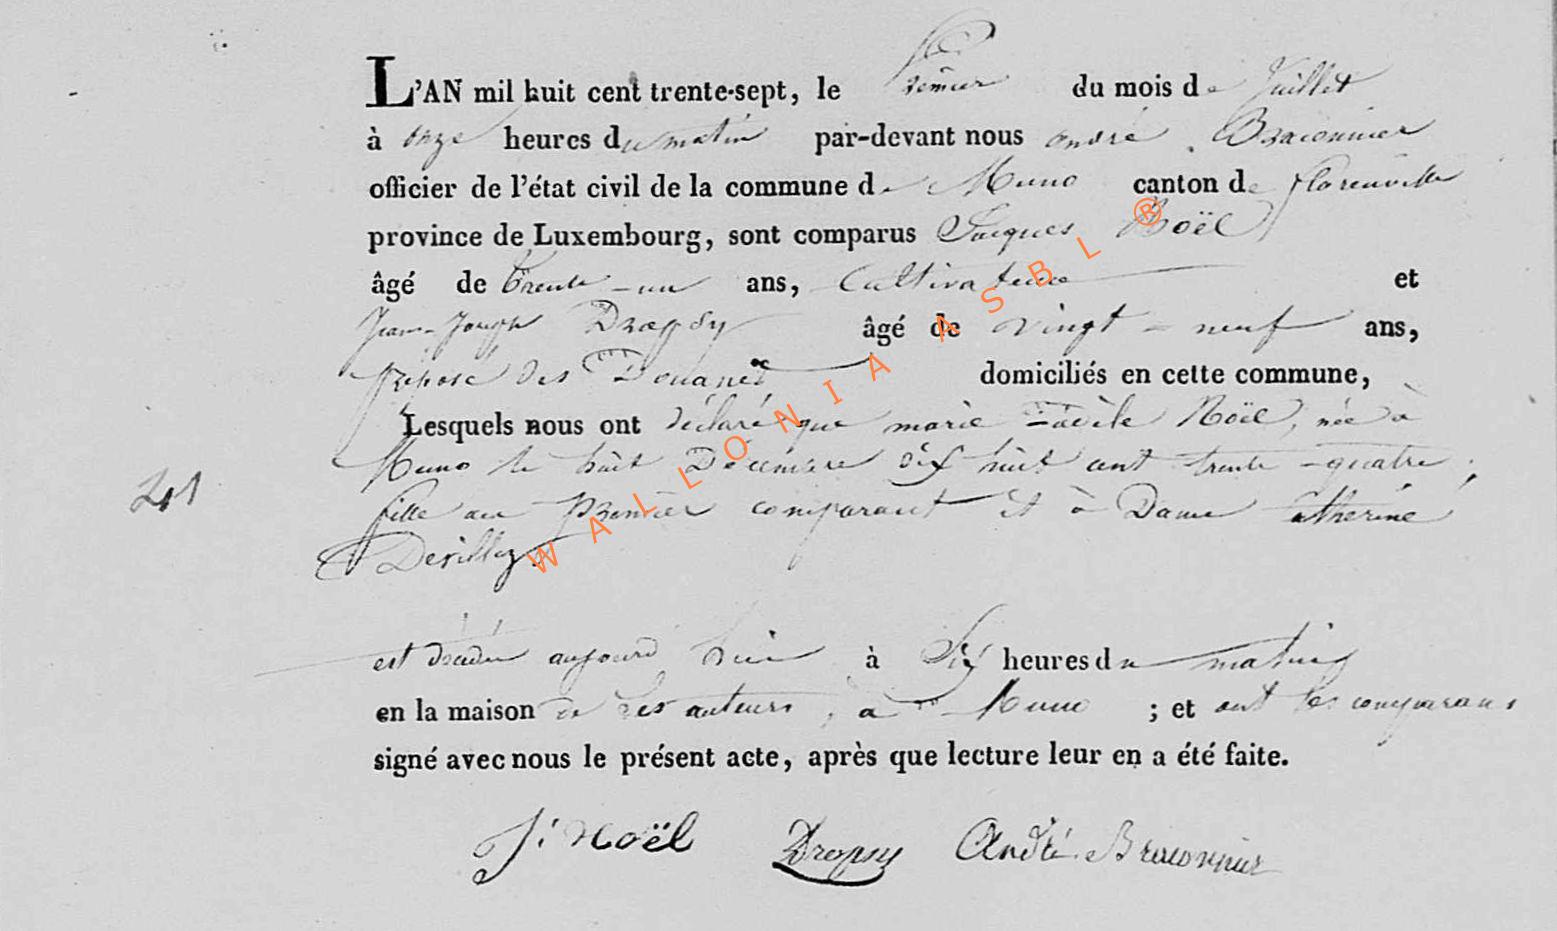 L'AN mil huit cent trente-sept, le Premier du mois de Juillet
à onze heures du matin par-devant nous andré Braconnier
officier de l'état civil de la commune de Muno canton de florenville
province de Luxembourg, sont comparus Jacques Noël
âgé de trente-un ans, Cultivateur et
Jean-Joseph Dropsy âgé de vingt-neuf ans,
préposé des Douanes domiciliés en cette commune,
Lesquels nous ont déclaré que marie Adèle Noël, née à
Muno le huit Décembre dix huit cent trente-quatre,
fille au Premier comparant et à Dame Catherine
241
est décédée aujourd'hui à Six heures du matin
en la maison de Ses auteurs, à Muno ; et ont les comparans
signé avec nous le présent acte, après que lecture leur en a été faite.
J. Noël Dropsy André Braconnier
WALLONIA ASBL ®